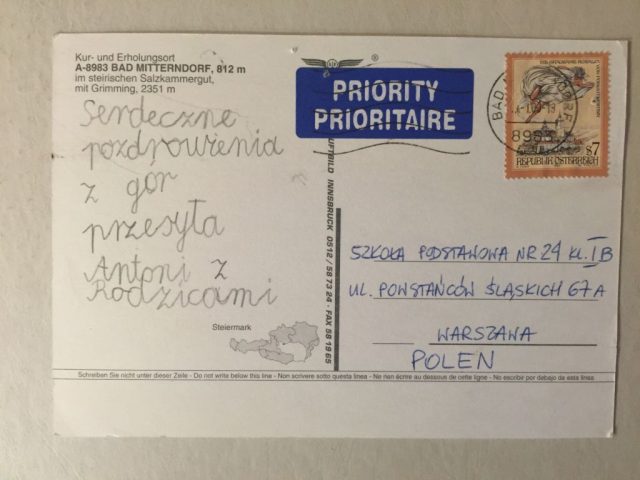 Kur- und Erholungsort
A-8983 BAD MITTERNDORF, 812 m
im steirischen Salzkammergut,
mit Grimming, 2351 m
PRIORITY
PRIORITAIRE
Serdeczne
pozdrowienia
z gor
przesyła
Antoni z
Rodzicami
LUFTBILD INNSBRUCK 0512 / 58 73 24 · FAX 58 19 85
8983
S7
REPUBLIK ÖSTERREICH
SZKOŁA PODSTAWOWA NR 24 KL. IB
UL. POWSTAŃCÓW ŚLĄSKICH 67A
WARSZAWA
POLEN
Steiermark
Schreiben Sie nicht unter dieser Zeile - Do not write below this line - Non scrivere sotto questa linea - Ne rien écrire au dessous de cette ligne - No escribir por debajo de esta linea